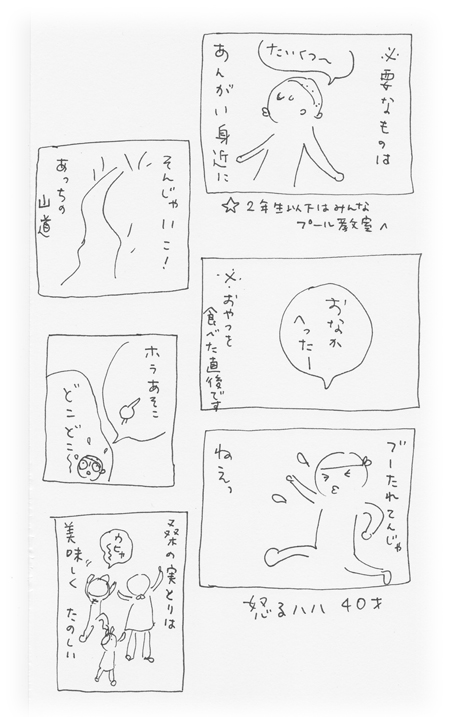 必要なものは
たいくつ〜
あんがい身近に
☆2年生以下はみんな
プール教室へ
おなか
へったー
※おやつを
食べた直後です
ブーたれてんじゃ
ねえっ
怒るハハ 40才
そんじゃいこ!
あっちの
山道
ホラあそこ
どこどこ〜
桑の実とりは
ウヒャ〜
美味しく たのしい